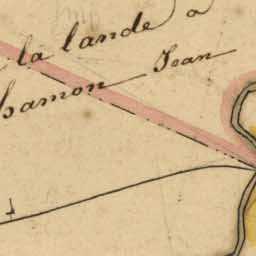 la lande a
hamon Jean